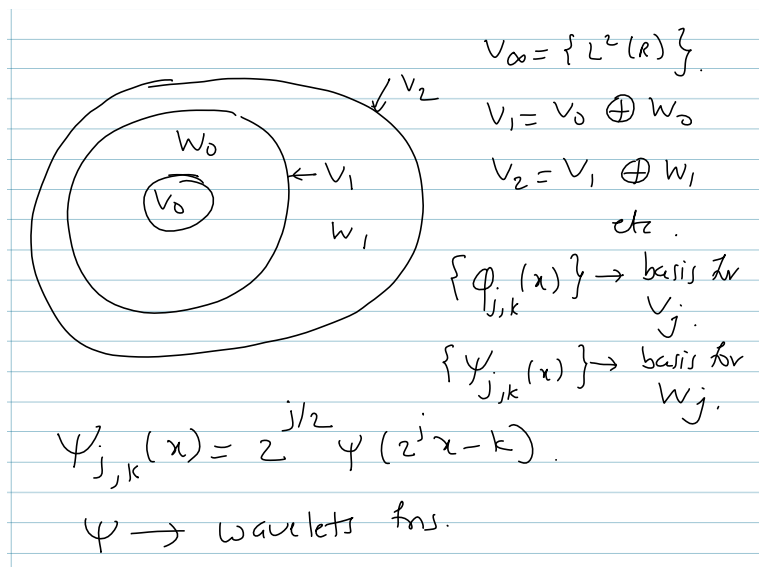 V∞ = { L²(R) }.
V₂
V₁ = V₀ ⊕ W₀
W₀
V₂ = V₁ ⊕ W₁
← V₁
V₀
W₁
etc.
{ φ_{j,k}(x) } → basis for V_j.
{ ψ_{j,k}(x) } → basis for W_j.
ψ_{j,k}(x) = 2^{j/2} ψ(2^j x - k).
ψ → wavelets fns.